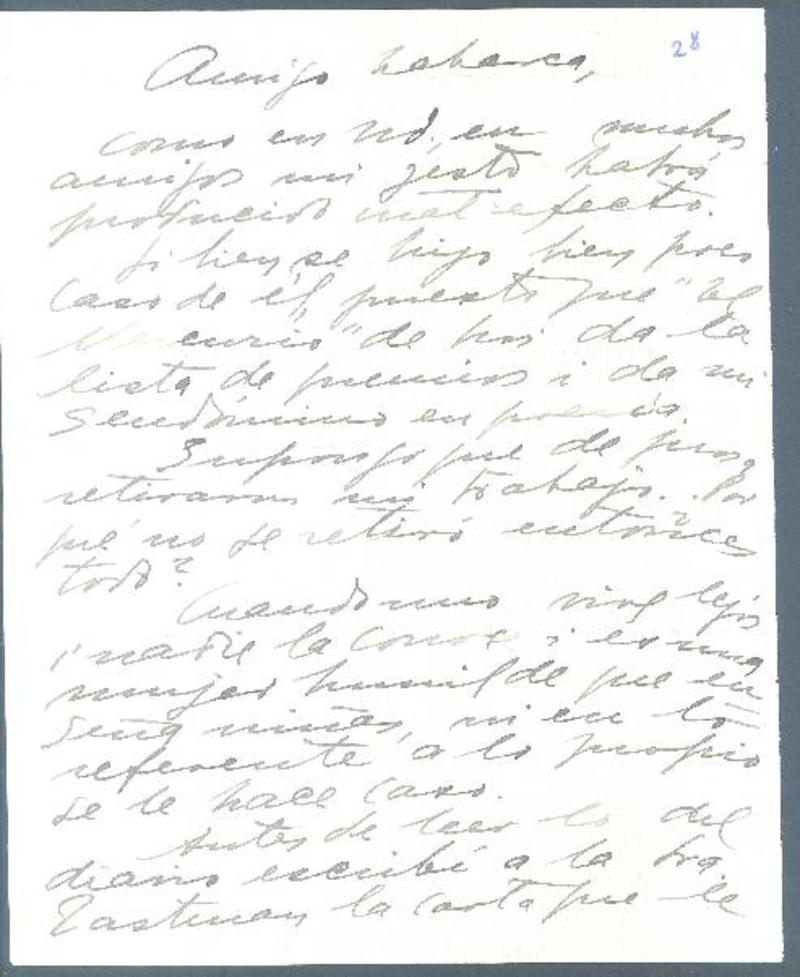 28
Amigo Labarca,
como en Ud. en muchos
amigos mi gesto habrá
producido mal efecto.
Si bien se hizo bien poco
caso de él, puesto que "El
Mercurio" de hoi da la
lista de premios i da mi
seudónimo en poesía.
Supongo que de prosa
retiraron mi trabajo. Por
qué no se retiró entónces
todo?
Cuando uno vive lejos
i nadie la conoce i es una
mujer humilde que en
seña niñas, ni en lo
referente a lo propio
se le hace caso.
Antes de leer lo del
diario escribí a la Sra.
Eastman la carta que le